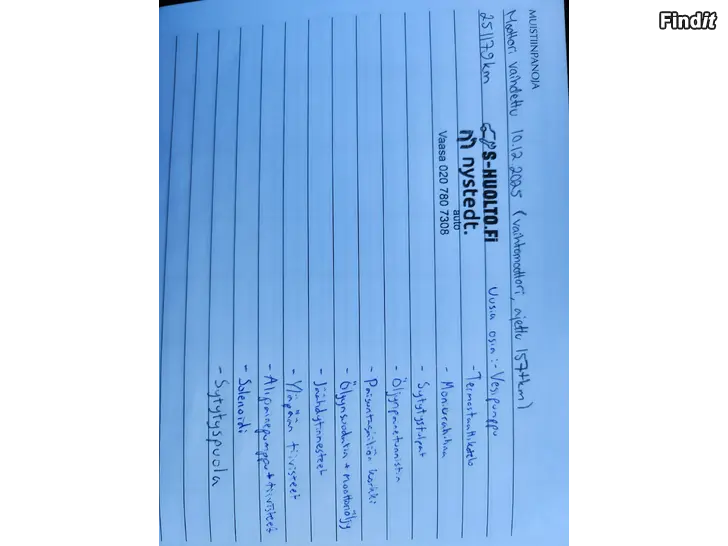 Findit
MUISTIINPANOJA
Moottori vaihdettu 10.12.2025 (vaihtomoottori, ajettu 157tkm)
251179km
S-HUOLTO.Fi
nystedt.
auto
Vaasa 020 780 7308
Uusia osia: - Vesipumppu
- Termostaattikotelo
- Moniurahihna
- Sytytystulpat
- Öljynpainetunnistin
- Paisuntasäiliön korkki
- Öljynsuodatin + moottoriöljy
- Jäähdytinnesteet
- Yläpään tiivisteet
- Alipainepumppu + tiivisteet
- Solenoidi
- Sytytyspuola